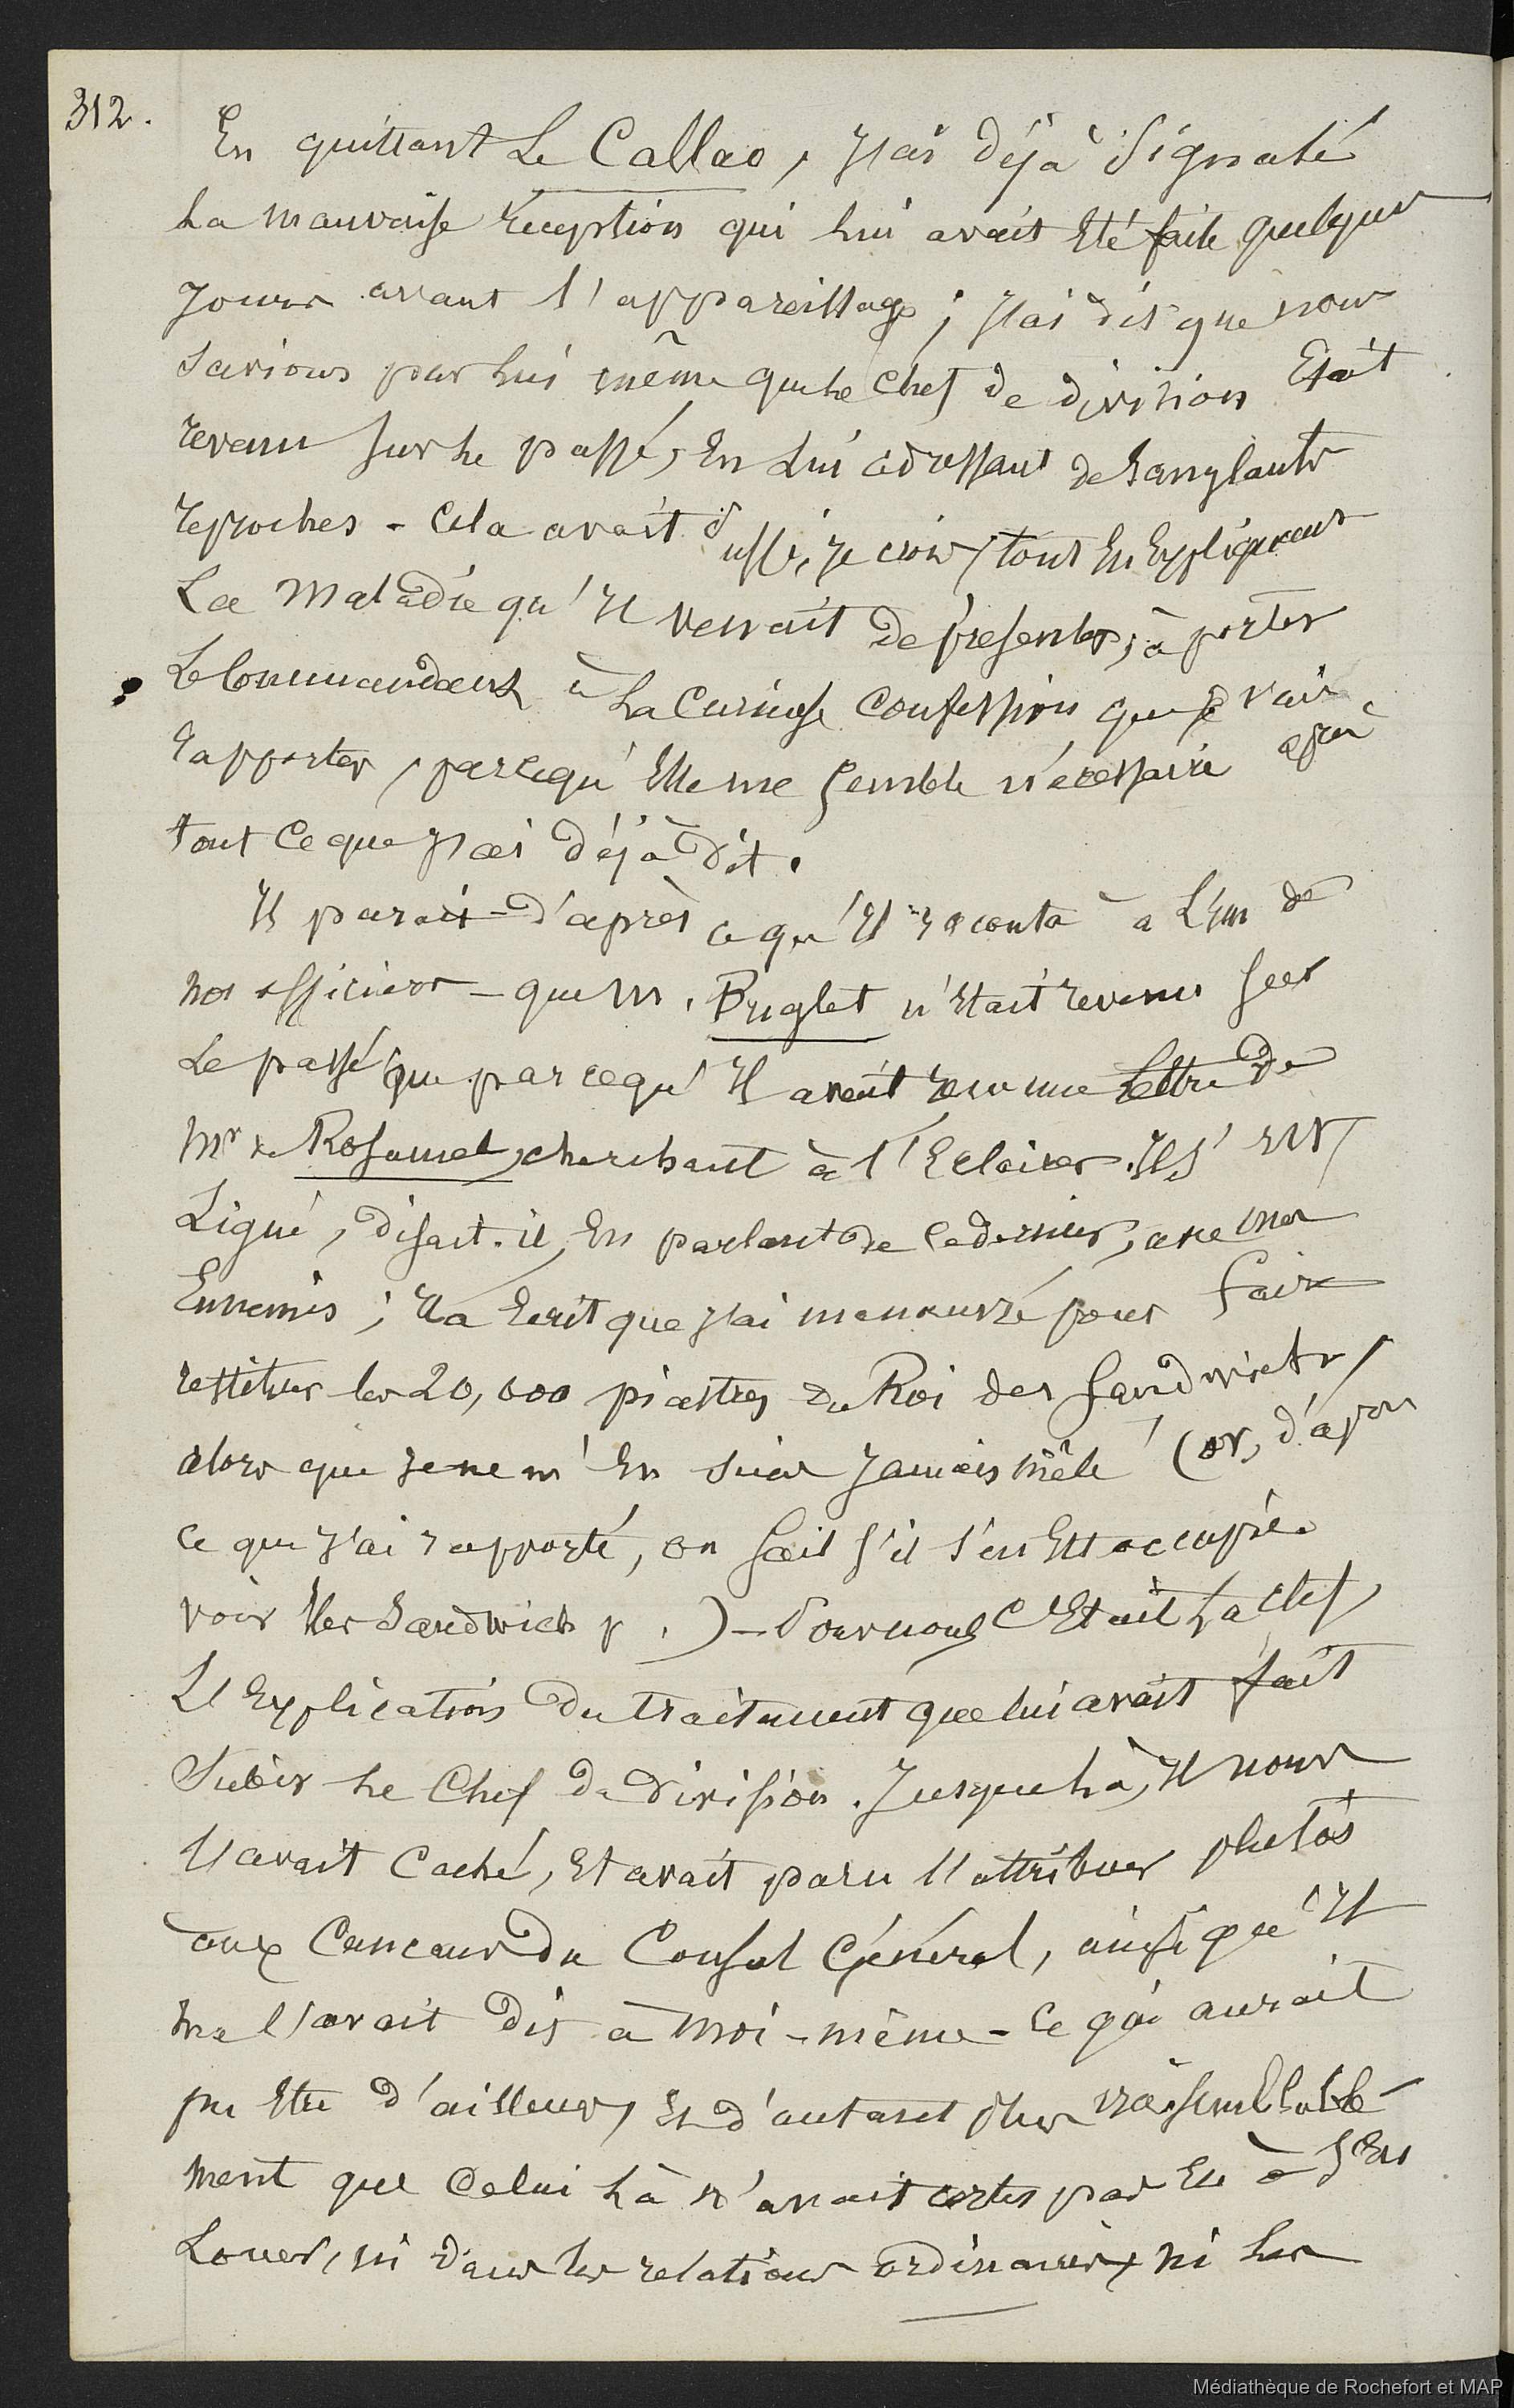 312.
En quittant Le Callao, J'ai déjà signalé
La mauvaise réception qui lui avait été faite quelques
jours avant l'appareillage ; J'ai dit que nous
savions par lui même que le chef de division Etait
revenu sur le passé, En Lui adressant de sanglants
reproches - Cela avait suffi, je crois, tout En Expliquant
La Maladie qu'Il venait de présenter, à porter
Le Commandant à La Curieuse Confession que je vais
rapporter, parcequ'Elle me semble nécessaire après
tout Ce que J'ai déjà dit.
Il parait - d'après ce qu'Il raconta à L'un de
nos officiers - que M. Buglet n'Etait revenu sur
Le passé que parcequ'Il avait reçu une Lettre de
Mr de Rosamel, cherchant à l'Eclairer. Il s'est
Ligué, disait-il, En parlant de Ce dernier, avec mes
Ennemis ; Il a Ecrit que J'ai manœuvré pour faire
restituer les 20,000 piastres du Roi des Sandwichs,
alors que je ne m'En suis Jamais mêlé (or, d'après
ce que J'ai rapporté, on sait s'il s'en Est occupé.
voir Iles Sandwich p .) - Pour nous C'Etait La clef,
L'Explication du traitement que lui avait fait
Subir Le Chef de division. Jusque là, Il nous
l'avait Caché, Et avait paru l'attribuer plutôt
aux Cancans du Consul Général, ainsi qu'Il
me l'avait dit à moi-même - Ce qui aurait
pu Etre d'ailleurs, Et d'autant plus vraisemblable-
ment que Celui Là n'avait certes pas Eu à s'En
Louer, ni dans les relations ordinaires, ni Les
Médiathèque de Rochefort et MAP